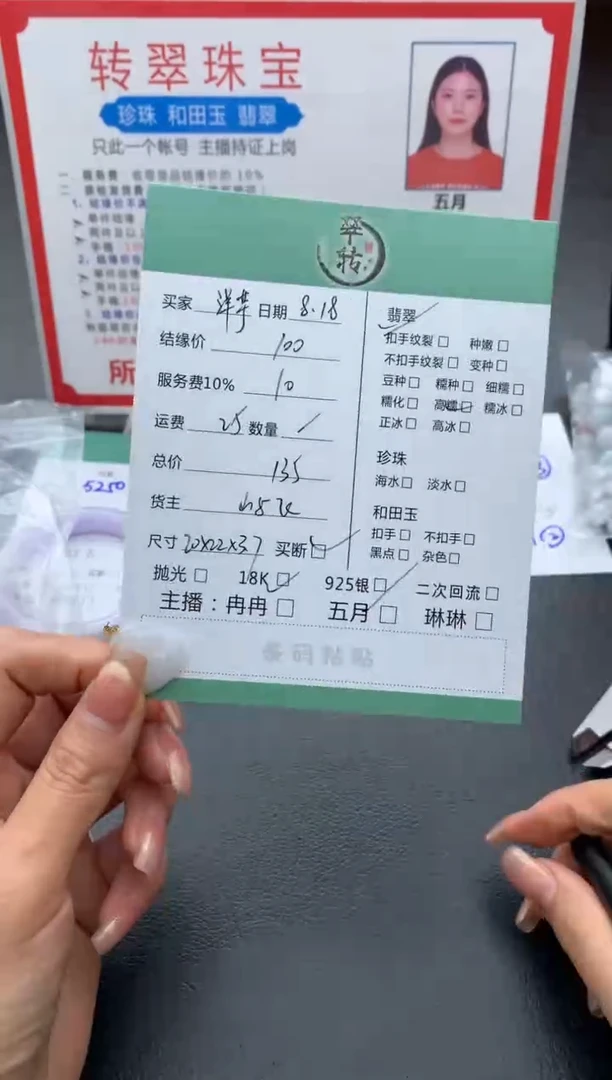 转翠珠宝
珍珠 和田玉 翡翠
只此一个帐号 主播持证上岗
五月
所
翠
转
买家 洋芋 日期 8.18
结缘价 100
服务费10% 10
运费 25 数量
总价 135
货主
尺寸 20x22x3.7 买断□
翡翠
扣手纹裂□ 种嫩□
不扣手纹裂□ 变种□
豆种□ 糯种□ 细糯□
糯化□ 高糯□ 糯冰□
正冰□ 高冰□
珍珠
海水□ 淡水□
和田玉
扣手□ 不扣手□
黑点□ 杂色□
抛光□ 18K□ 925银□ 二次回流□
主播：冉冉□ 五月□ 琳琳□
条码粘贴
5250